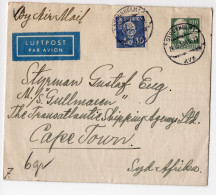 By Air Mail
LUFTPOST
PAR AVION
Styrman Gustaf Eng.
M/S "Gullmaren"
The Transatlantic Shipping Agency Ltd.
Cape Town.
6 gr
Syd-Afrika.